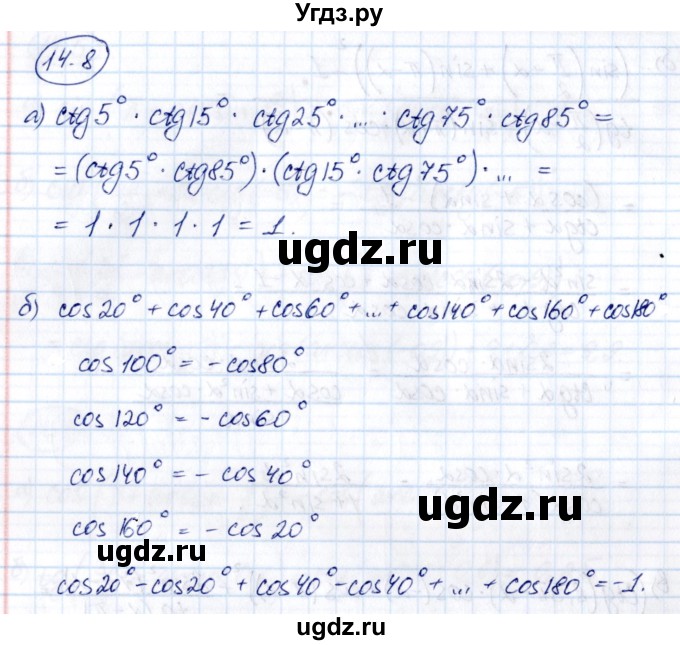 Угдз.ру
14.8
а) ctg5° · ctg15° · ctg25° · ... · ctg75° · ctg85° =
= (ctg5° · ctg85°) · (ctg15° · ctg75°) · ... =
= 1 · 1 · 1 · 1 = 1.
ugdz.ru
б) cos20° + cos40° + cos60° + ... + cos140° + cos160° + cos180°
cos100° = - cos80°
cos120° = - cos60°
cos140° = - cos40°
ugdz.ru
cos160° = - cos20°
ugdz.ru
cos20° - cos20° + cos40° - cos40° + ... + cos180° = -1.
ugdz.ru